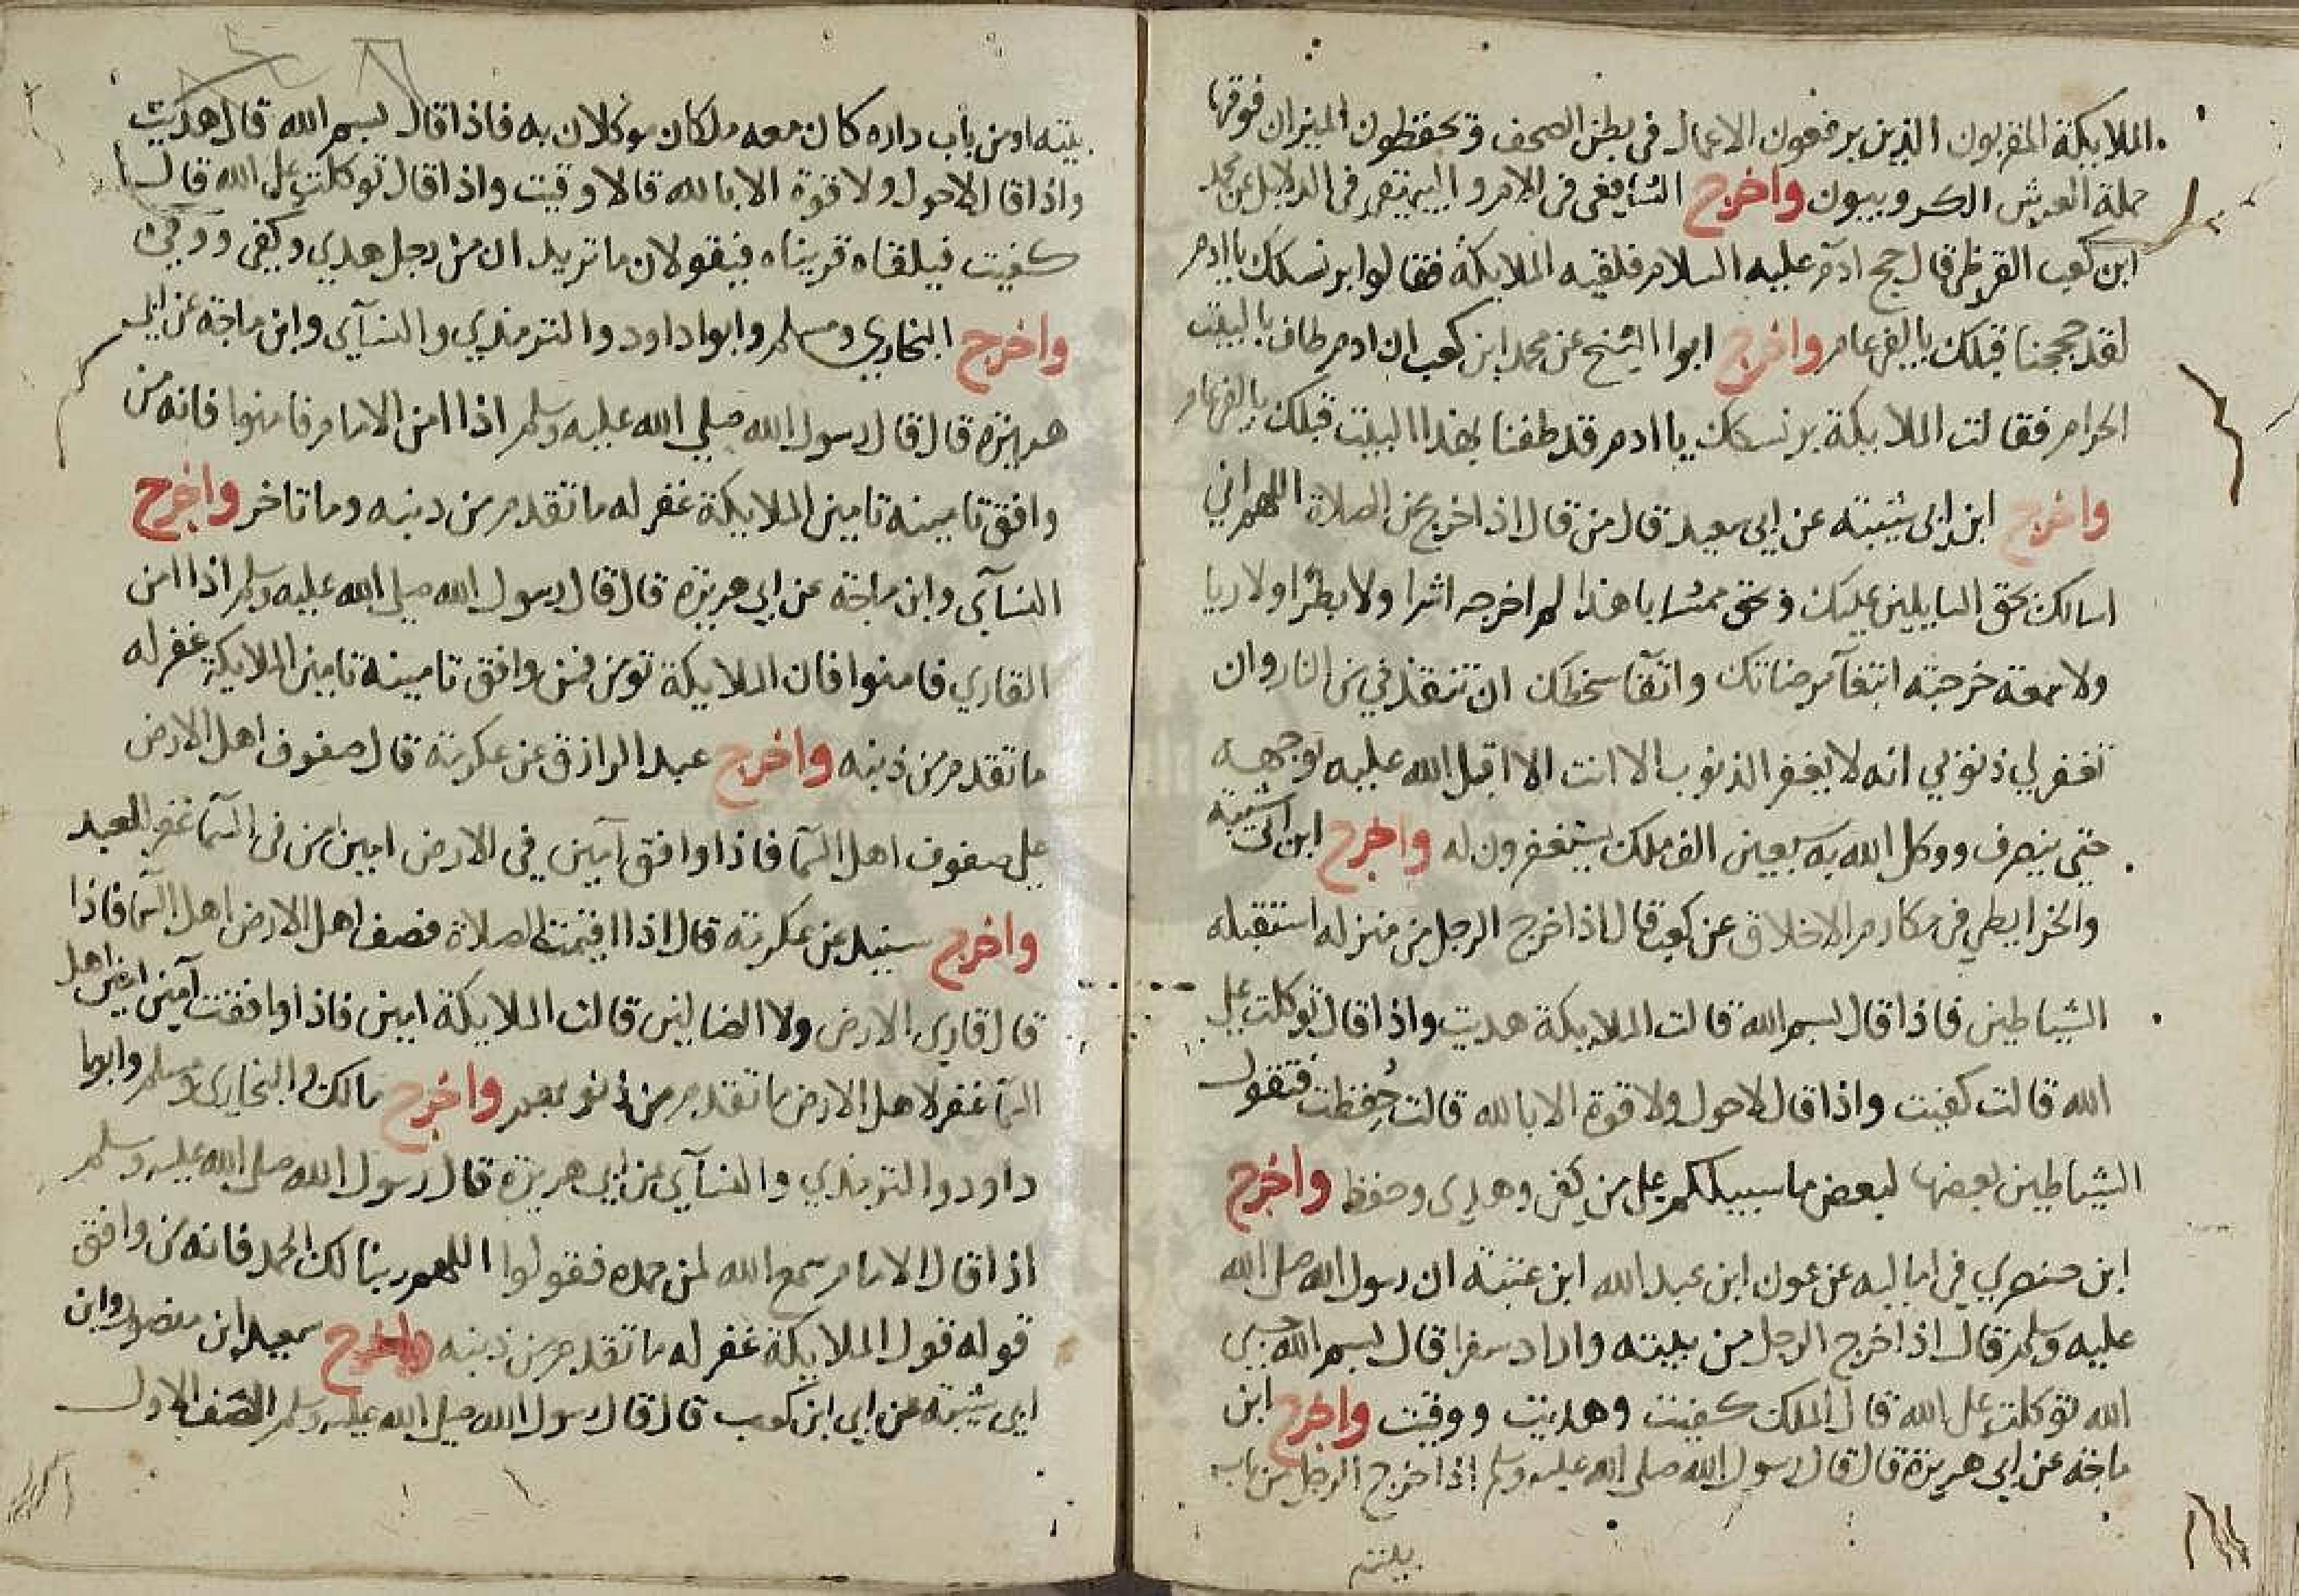 الملايكة المقربون الذين يرفعون الاعمال في بطن الصحف ويحفظون الميزان فوقها
حملة العرش الكروبيون واخرج الشافعي في الام والبيهقي في الدلايل عن محمد
ابن كعب القرظي قال حج ادم عليه السلام فلقيه الملايكة فقالوا بر نسكك يا ادم
لقد حججنا قبلك بالفي عام واخرج ابوا الشيخ عن محمد ابن كعب ان ادم طاف بالبيت
الحرام فقالت الملايكة بر نسكك يا ادم قد طفنا بهذا البيت قبلك بالفي عام
واخرج ابن ابي شيبة عن ابي سعيد قال من قال اذا خرج الى الصلاة اللهم اني
اسالك بحق السايلين عليك وبحق ممشايا هذا لم اخرجه اشرا ولا بطرا ولا ريا
ولا سمعة خرجته ابتغآ مرضاتك واتقآ سخطك ان تنقذني من النار وان
تغفر لي ذنوبي انه لا يغفر الذنوب الا انت الا اقبل الله عليه بوجهه
حتى ينصرف ووكل الله به سبعين الف ملك يستغفرون له واخرج ابن ابي شيبة
والخرايطي في مكارم الاخلاق عن كعب قال اذا خرج الرجل من منزله استقبله
الشياطين فاذا قال بسم الله قالت الملايكة هديت واذا قال توكلت على
الله قالت كفيت واذا قال لاحول ولا قوة الا بالله قالت حُفظت فتقول
الشياطين بعضها لبعض ما سبيلكم على من كفي وهدى وحفظ واخرج
ابن صصري في اماليه عن عون ابن عبد الله ابن عتبة ان رسول الله صلى الله
عليه وسلم قال اذا خرج الرجل من بيته واراد سفرا قال بسم الله حسبي
الله توكلت على الله قال الملك كفيت وهديت ووقيت واخرج ابن
ماجة عن ابي هريرة قال قال رسول الله صلى الله عليه وسلم اذا خرج الرجل من باب
بيته
بيته او من باب داره كان معه ملكان موكلان به فاذا قال بسم الله قال هديت
واذا قال لاحول ولا قوة الا بالله قالا وقيت واذا قال توكلت على الله قالا
كفيت فيلقاه قريناه فيقولان ما تريدان من رجل هدي وكفي ووقي
واخرج البخاري ومسلم وابوا داود والترمذي والنسآي وابن ماجة عن ابي
هريرة قال قال رسول الله صلي الله عليه وسلم اذا امن الامام فامنوا فانه من
وافق تامينه تامين الملايكة غفر له ما تقدم من ذنبه وما تاخر واخرج
النسآي وابن ماجة عن ابي هريرة قال قال رسول الله صلي الله عليه وسلم اذا امن
القاري فامنوا فان الملايكة تومن فمن وافق تامينه تامين الملايكة غفر له
ما تقدم من ذنبه واخرج عبد الرازق عن عكرمة قال صفوف اهل الارض
على صفوف اهل السمآ فاذا وافق آمين في الارض امين من في السمآ غفر للعبد
واخرج سنيد عن عكرمة قال اذا اقيمت الصلاة فصف اهل الارض اهل السمآ فاذا
قال قاري الارض ولا الضالين قالت الملايكة امين فاذا وافقت آمين امين اهل
السمآ غفر لاهل الارض ما تقدم من ذنوبهم واخرج مالك والبخاري ومسلم وابوا
داود والترمذي والنسآي عن ابي هريرة قال رسول الله صلى الله عليه وسلم
اذا قال الامام سمع الله لمن حمده فقولوا اللهم ربنا لك الحمد فانه من وافق
قوله قول الملايكة غفر له ما تقدم من ذنبه واخرج سعيد ابن منصور وابن
ابي شيبة عن ابي ابن كعب قال قال رسول الله صلى الله عليه وسلم الصف الاول